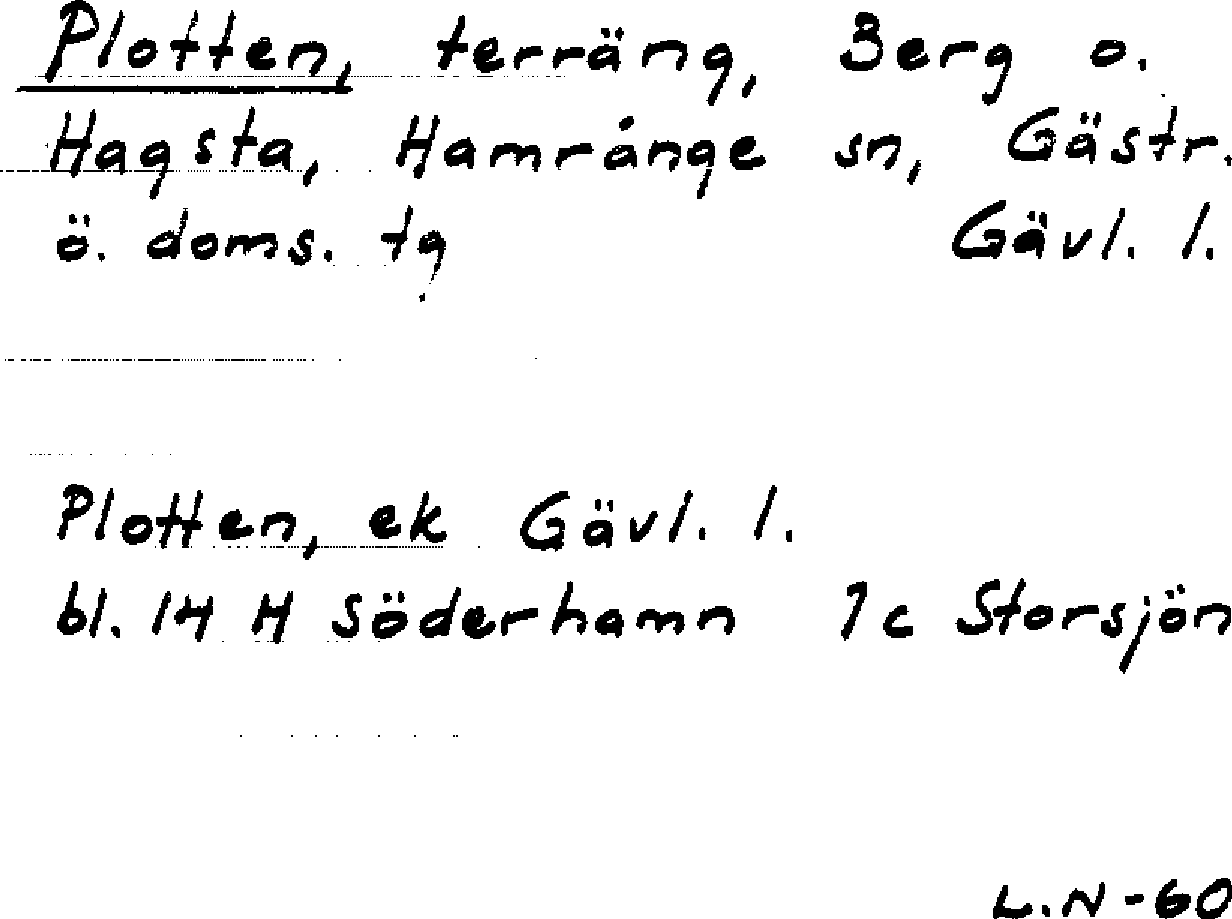 Plotten, terräng, Berg o.
Hagsta, Hamrånge sn, Gästr.
ö. doms. tg Gävl. l.
Plotten, ek Gävl. l.
bl. 14 H Söderhamn 1c Storsjön
L.N-60